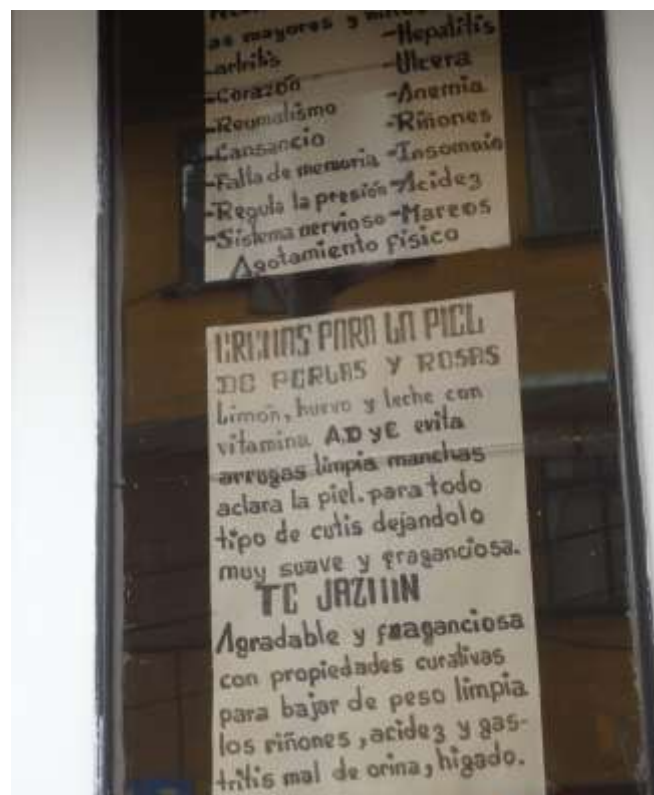 as mayores y niños
-artritis
-Corazón
-Reumatismo
-Cansancio
-Falta de memoria
-Regula la presión
-Sistema nervioso
-Hepatitis
-Ulcera
-Anemia
-Riñones
-Insomnio
-Acidez
-Mareos
Agotamiento físico
CREMAS PARA LA PIEL
DE PERLAS Y ROSAS
Limon, huevo y leche con
vitamina A.D y E evita
arrugas limpia manchas
aclara la piel. para todo
tipo de cutis dejandolo
muy suave y fraganciosa.
TE JAZMIN
Agradable y fraganciosa
con propiedades curativas
para bajar de peso limpia
los riñones, acidez y gas-
tritis mal de orina, higado.